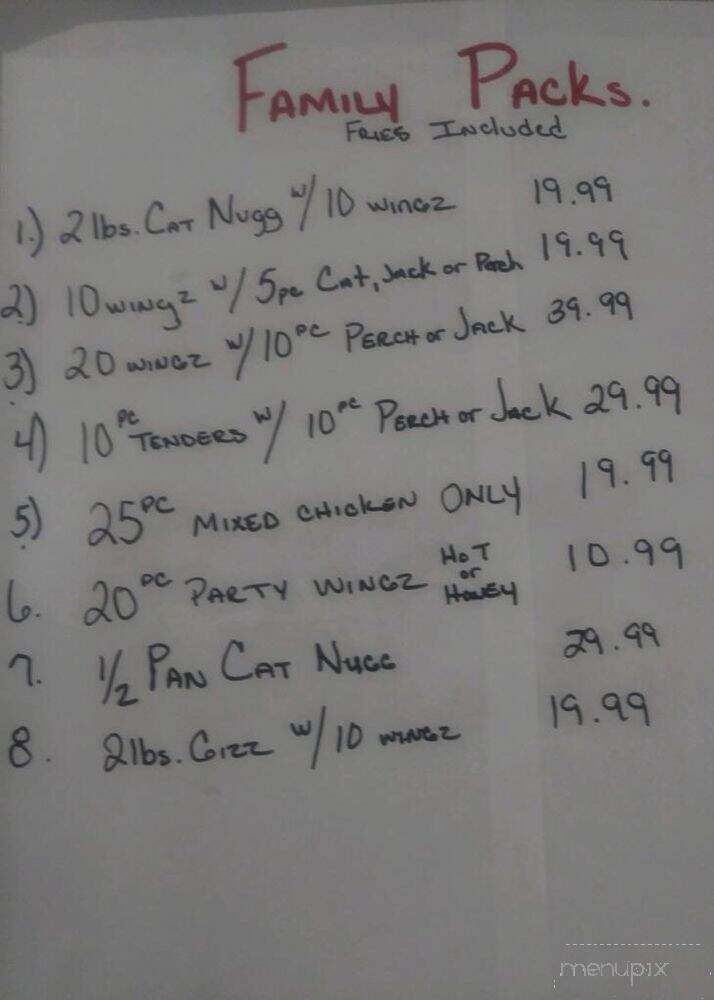 FAMILY PACKS.
FRIES INCLUDED
1.) 2 lbs. CAT NUGG W/ 10 WINGZ 19.99
2.) 10 WINGZ W/ 5pc Cat, Jack or Perch 19.99
3.) 20 WINGZ W/ 10 PC PERCH or JACK 39.99
4.) 10 PC TENDERS W/ 10 PC PERCH or JACK 29.99
5.) 25 PC MIXED CHICKEN ONLY 19.99
6. 20 PC PARTY WINGZ HOT or HONEY 10.99
7. 1/2 PAN CAT NUGG 29.99
8. 2lbs. GIZZ W/ 10 WINGZ 19.99
menupix